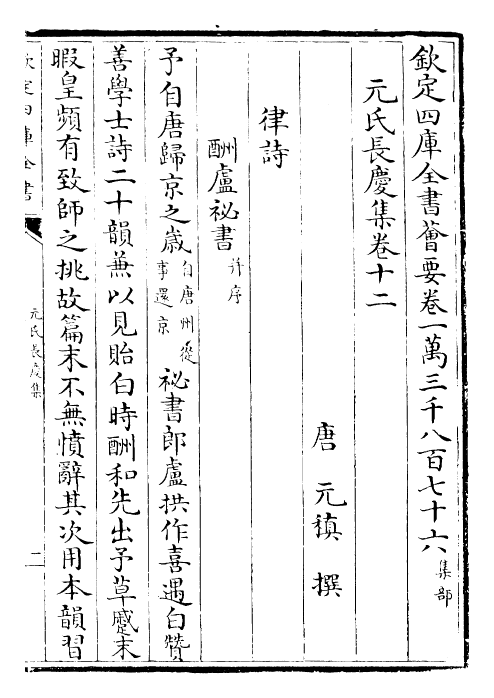 欽定四庫全書薈要卷一萬三千八百七十六 集部
元氏長慶集卷十二
唐 元稹 撰
律詩
酬盧祕書 并序
予自唐歸京之歳 自唐州從事還京 祕書郎盧拱作喜遇白贊
善學士詩二十韻兼以見貽白時酬和先出予草蹙未
暇皇頻有致師之挑故篇末不無憤辭其次用本韻習
欽定四庫全書
元氏長慶集
二